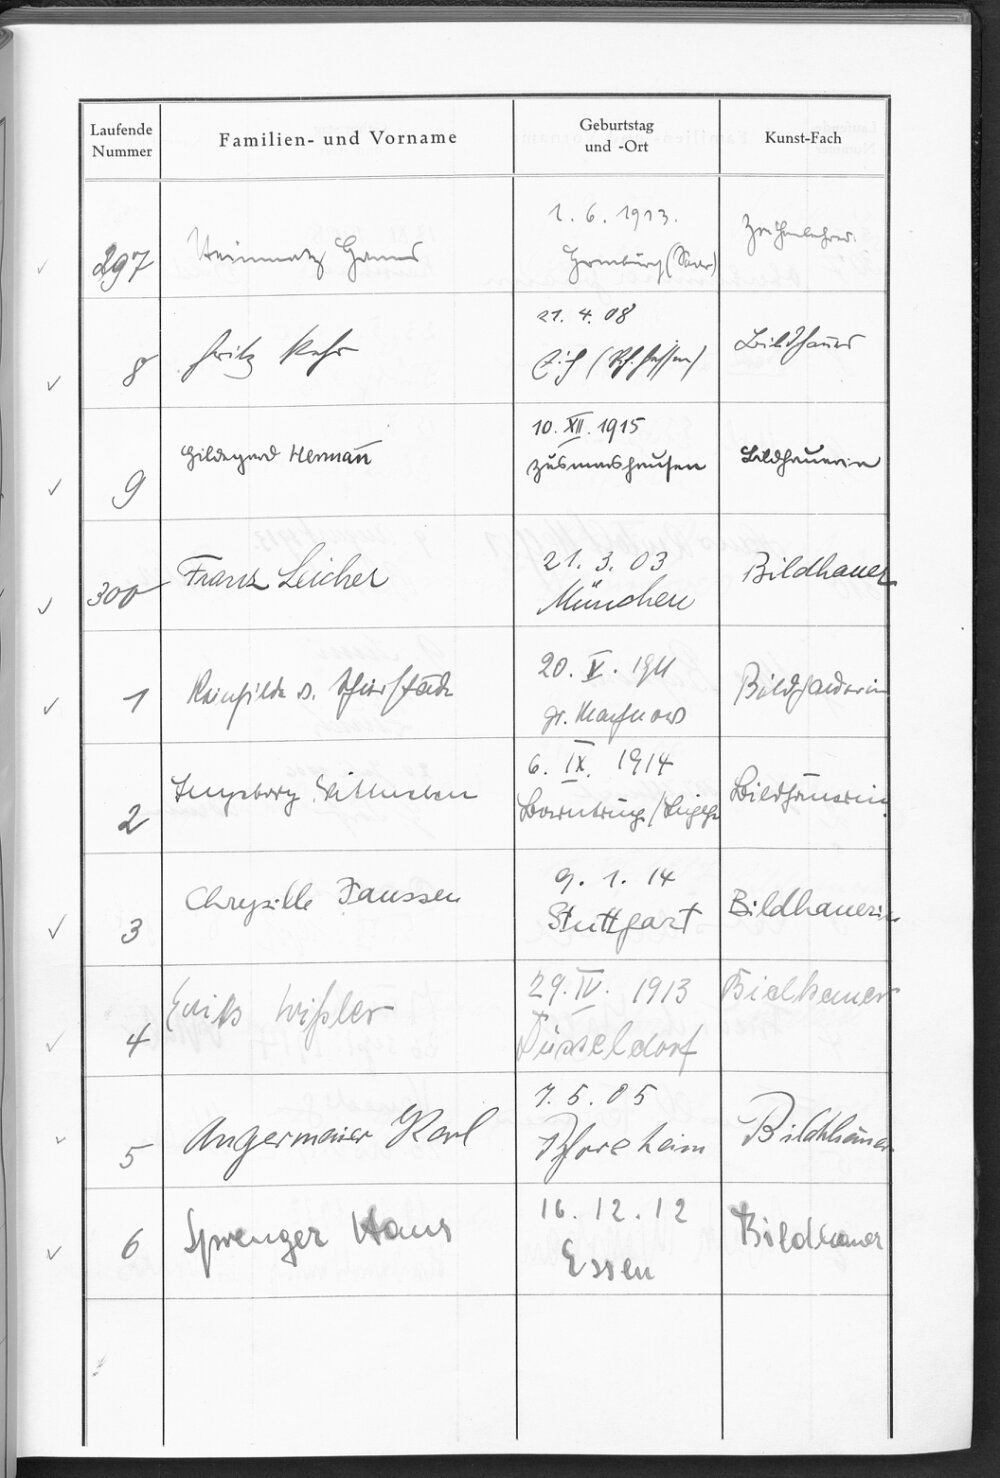 Laufende Nummer
Familien- und Vorname
Geburtstag und -Ort
Kunst-Fach
297 Steinmetz Hanns
1. 6. 1913.
Homburg (Saar)
Zeichenlehrer.
8 Fritz Kehr
21. 4. 08
Eich (Rh.hessen)
Bildhauer
9 Hildegard Hermann
10. XII. 1915
Zusmarshausen
Bildhauerin
300 Franz Leicher
21. 3. 03
München
Bildhauer
1 Reinhilde v.
20. V. 1911
gr.
Bildhauerin
2 Ingeborg
6. IX. 1914
Bildhauerin
3 Chrysille Janssen
9. 1. 14
Stuttgart
Bildhauerin
4 Wißler
29. IV. 1913
Düsseldorf
Bildhauer
5 Angermaier Karl
7. 5. 05
Pforzheim
Bildhauer
6 Sprenger Hans
16. 12. 12
Essen
Bildhauer